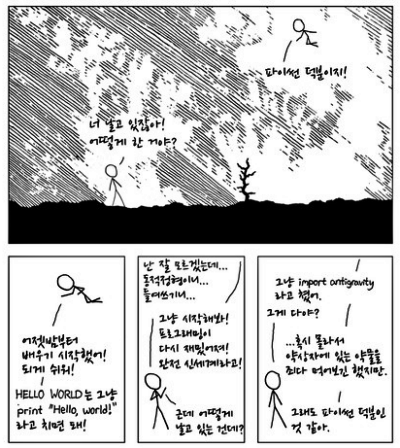 파이썬 덕분이지!
너 날고 있잖아!
어떻게 한 거야?
어젯밤부터
배우기 시작했어!
되게 쉬워!
HELLO WORLD는 그냥
print "Hello, world!"
라고 치면 돼!
난 잘 모르겠는데...
동적정형이니...
들여쓰기니...
그냥 시작해봐!
프로그래밍이
다시 재밌어져!
완전 신세계라고!
근데 어떻게
날고 있는 건데?
그냥 import antigravity
라고 쳤어.
그게 다야?
...혹시 몰라서
약상자에 있는 약물을
죄다 먹어보긴 했지만.
그래도 파이썬 덕분인
것 같아.